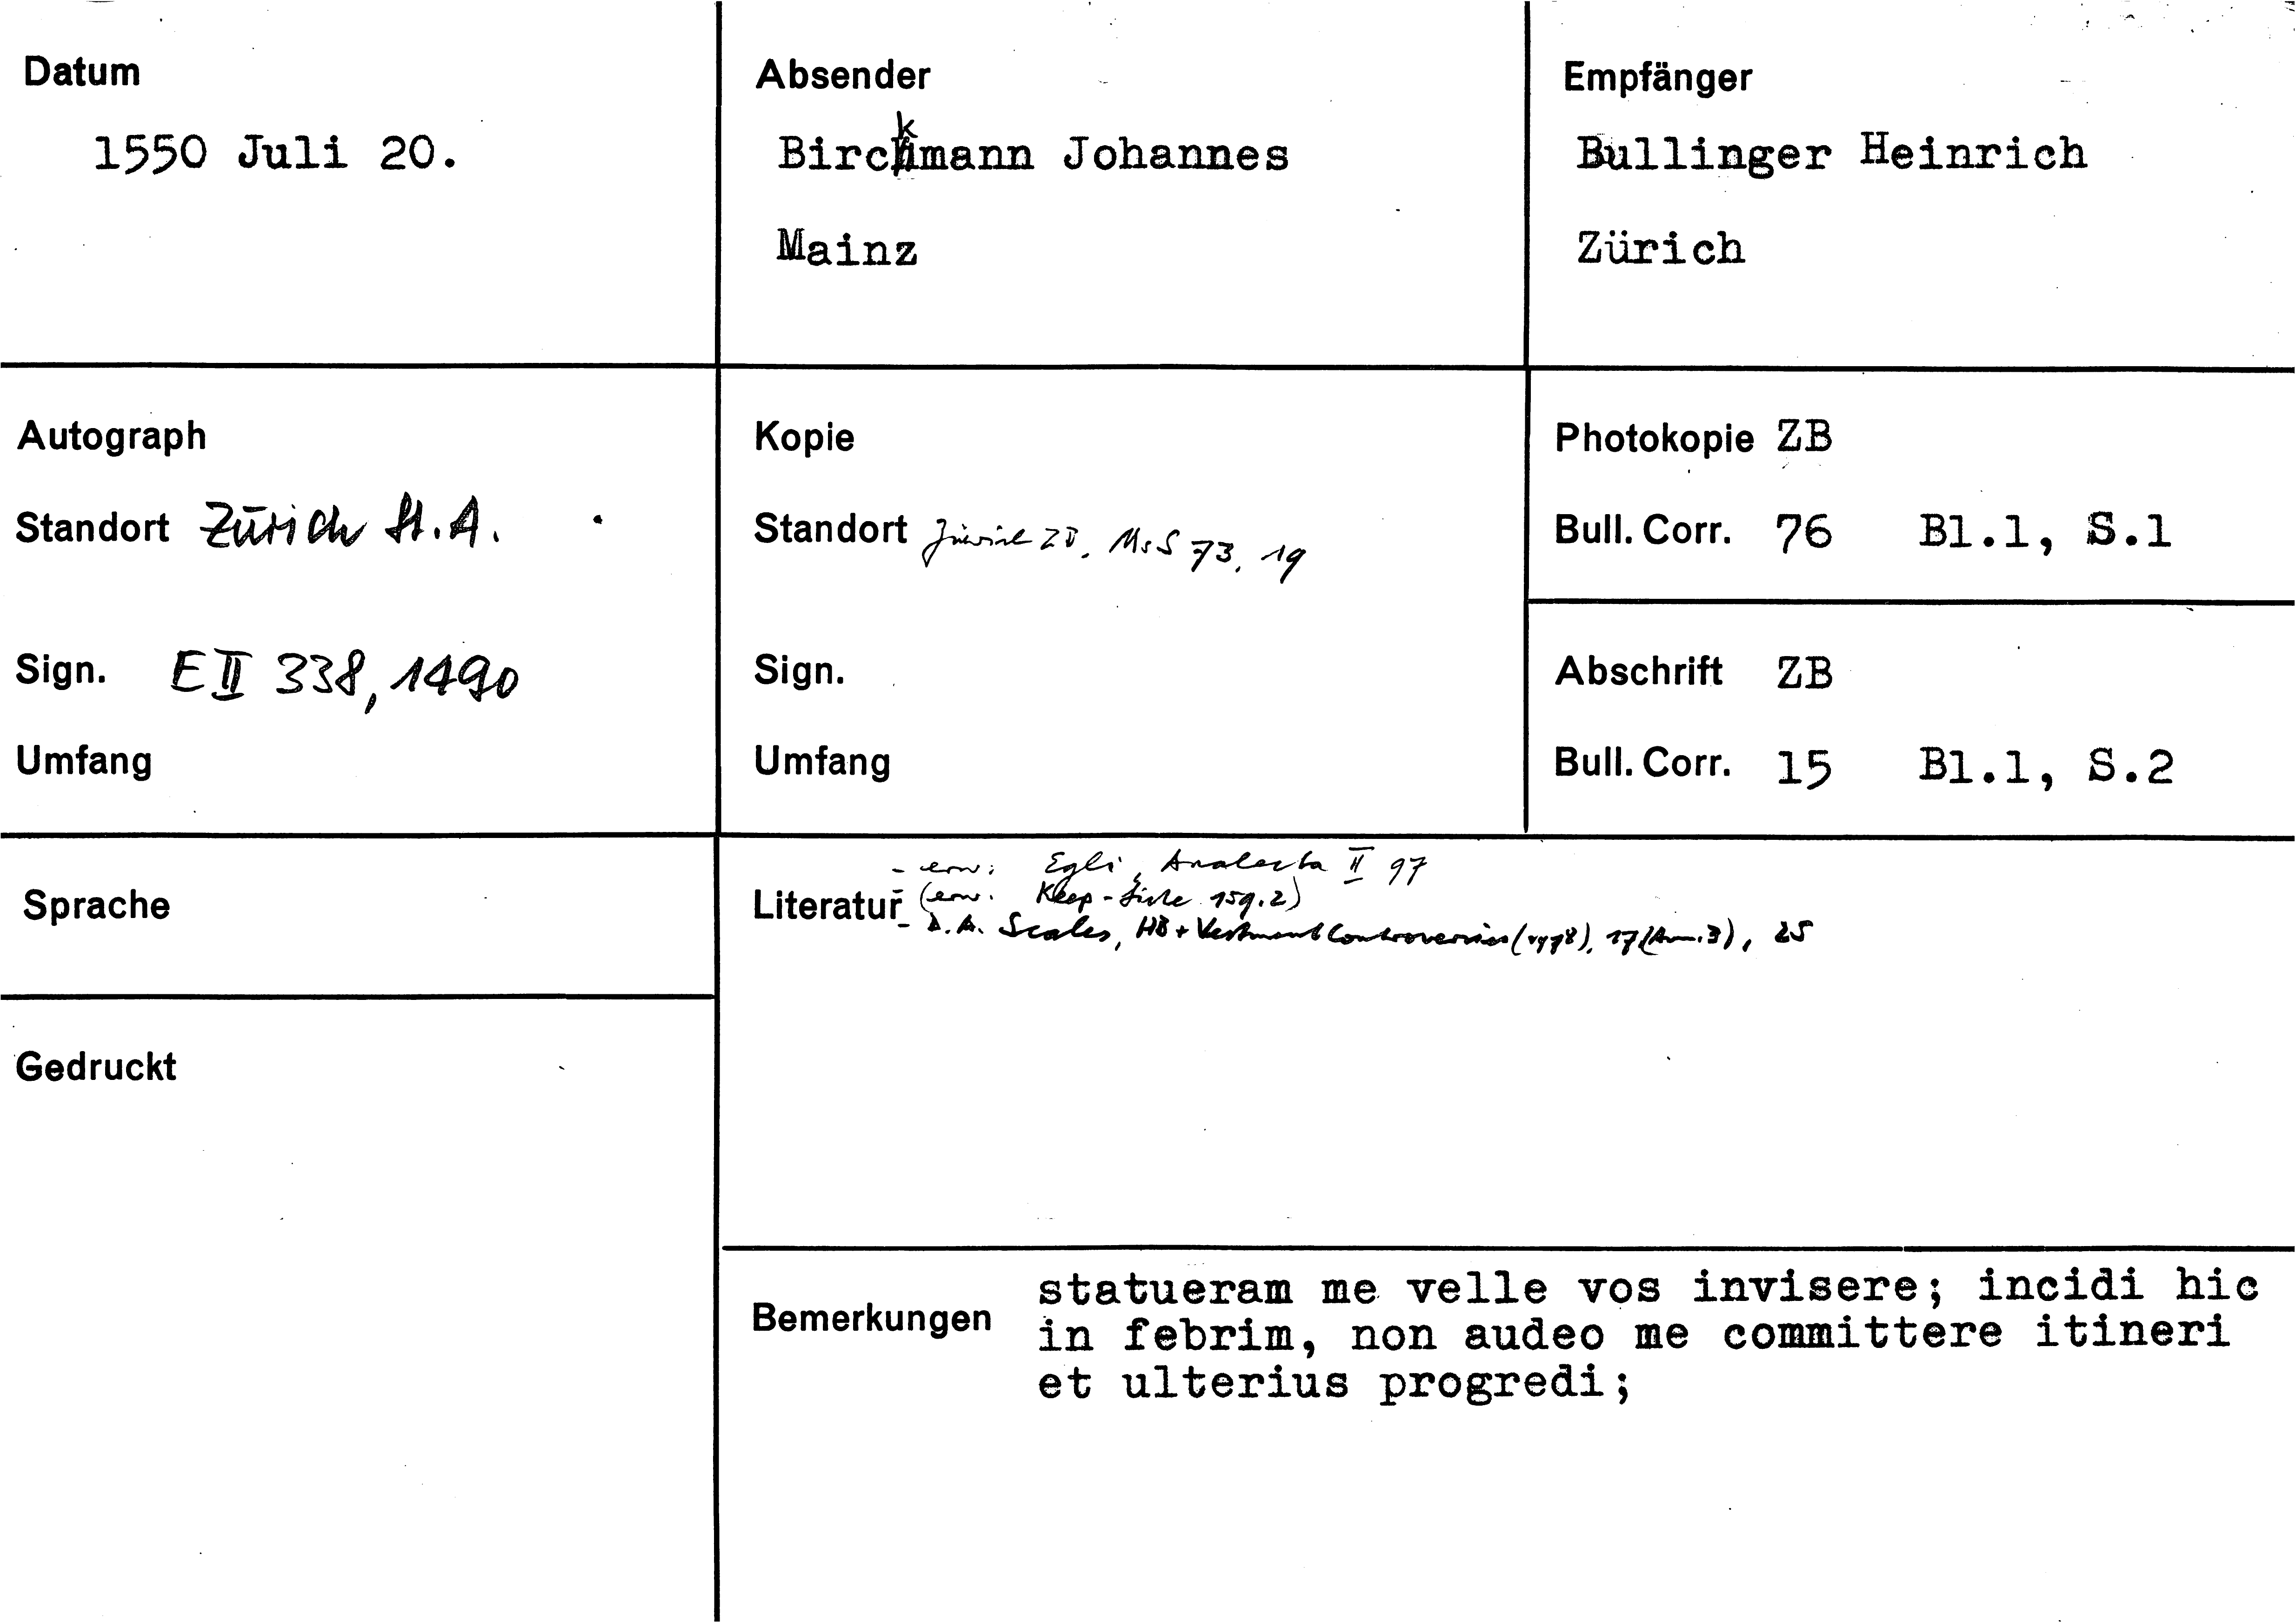 Datum
1550 Juli 20.
Absender
Birckmann Johannes
Mainz
Empfänger
Bullinger Heinrich
Zürich
Autograph
Standort Zürich St.A.
Sign. E II 338, 1490
Umfang
Kopie
Standort Zürich ZB, Ms S 73, 19
Sign.
Umfang
Photokopie ZB
Bull. Corr. 76 Bl.1, S.1
Abschrift ZB
Bull. Corr. 15 Bl.1, S.2
Sprache
Gedruckt
Literatur
- erw: Egli, Analecta II 97
(erw. Keep-Liste 159.2)
- D.A. Scales, HB + Vestment Controversies (1978), 17 (Anm. 3), 25
Bemerkungen
statueram me velle vos invisere; incidi hic
in febrim, non audeo me committere itineri
et ulterius progredi;